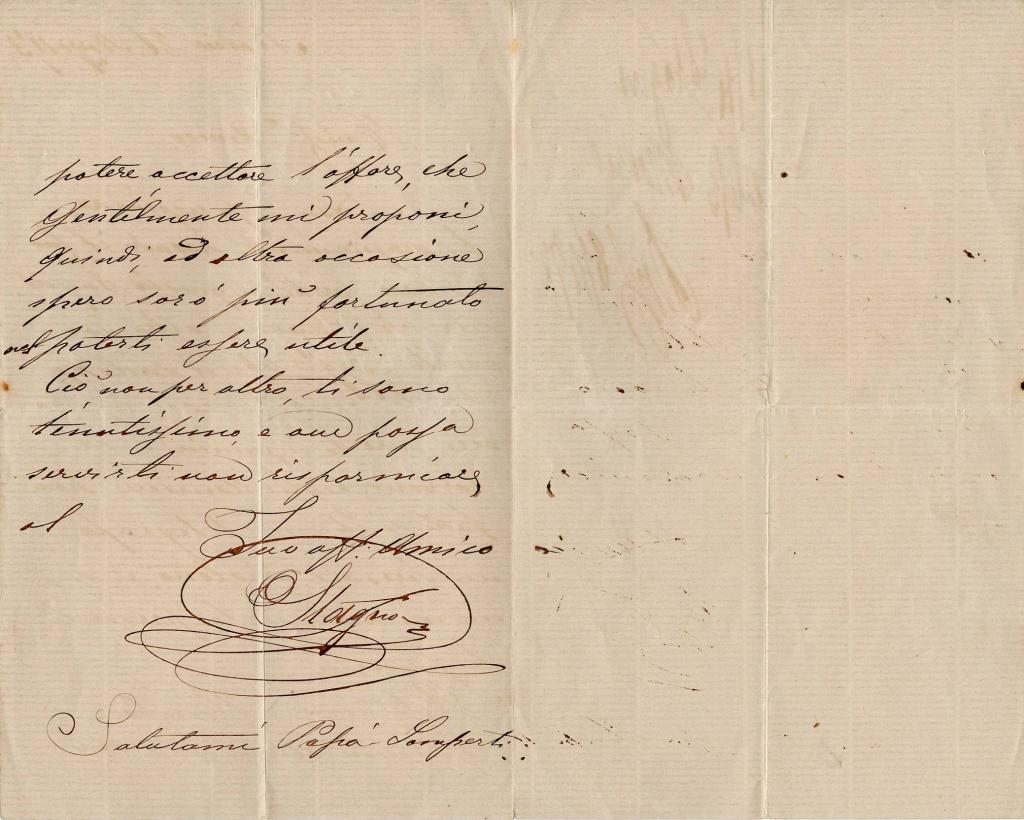 potere accettare l'affare, che
Gentilmente mi proponi,
quindi, ad altra occasione
spero sarò più fortunato
nel poterti essere utile.
Ciò non per altro, ti sono
tenutissimo, e ove possa
servirti non risparmiare
al
Tuo aff. Amico
Stagno
Salutami Papà Lamperti